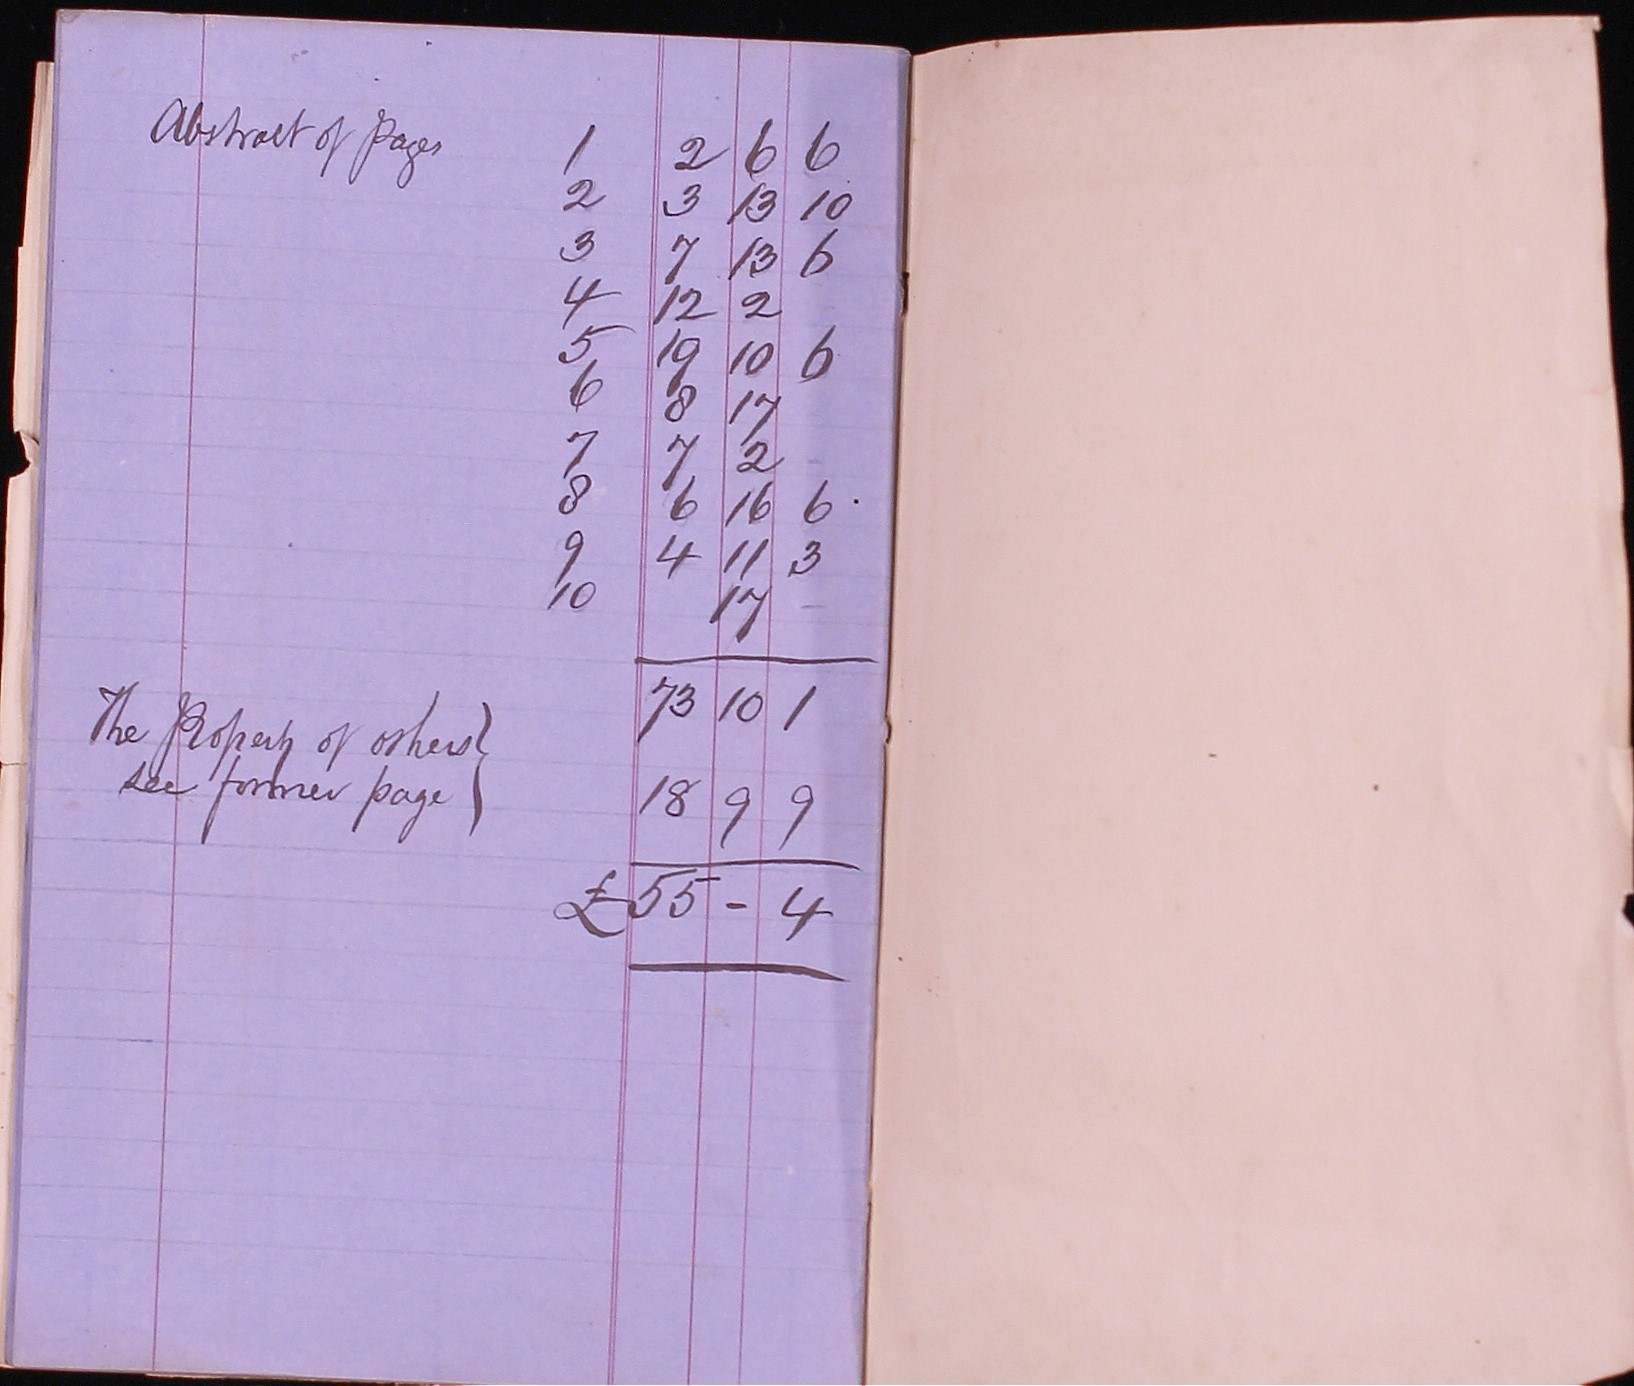 Abstract of Pages 1 2 6 6
2 3 13 10
3 7 13 6
4 12 2
5 19 10 6
6 8 17
7 7 2 -
8 6 16 6
9 4 11 3
10 17 -
73 10 1
The Property of others
see former page 18 9 9
£ 55 - 4